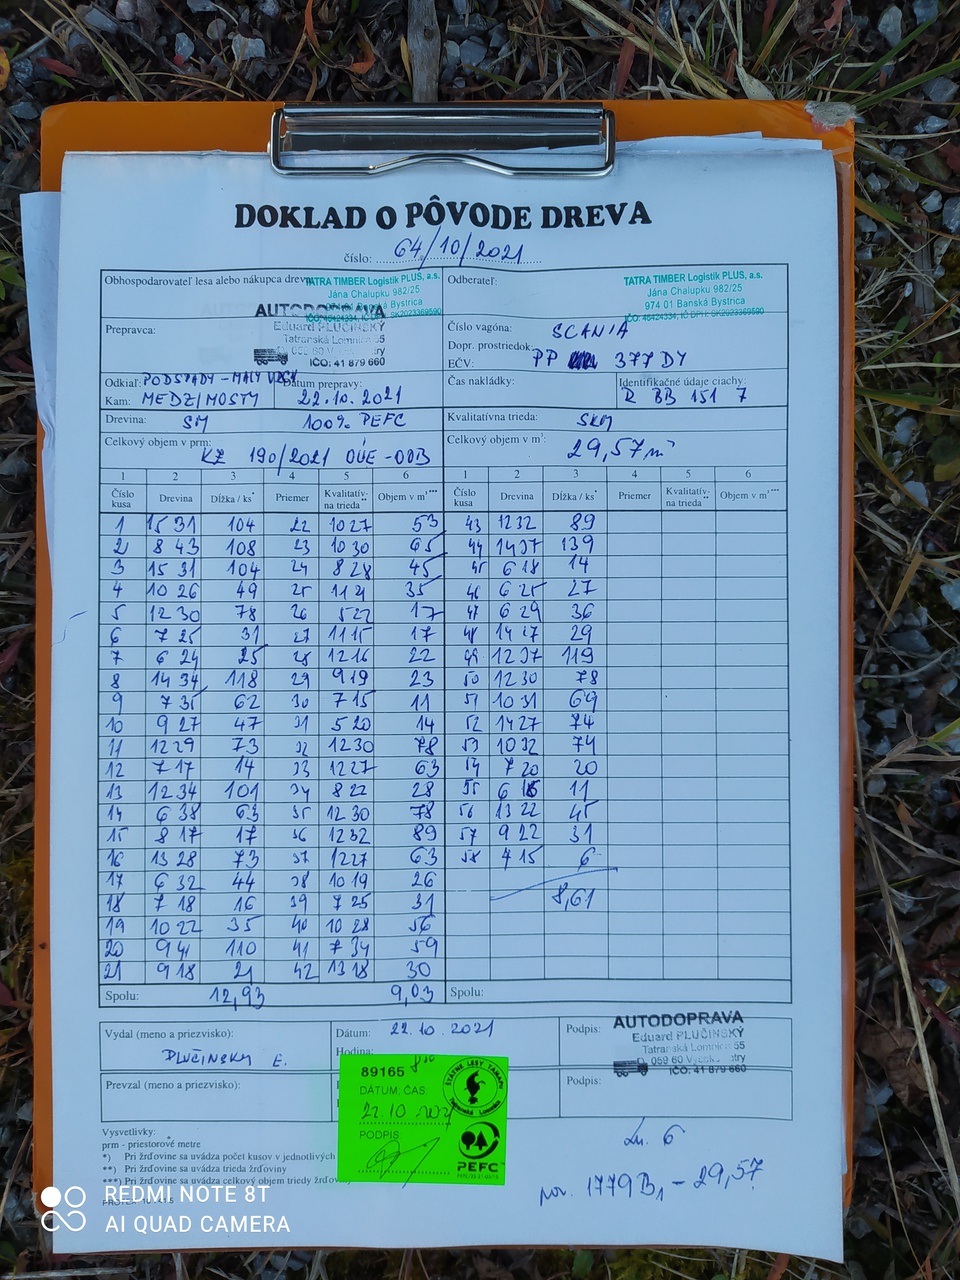 DOKLAD O PÔVODE DREVA
číslo: 64/10/2021
Obhospodarovateľ lesa alebo nákupca dreva:
TATRA TIMBER Logistik PLUS, a.s.
Jána Chalupku 982/25
974 01 Banská Bystrica
IČO: 45424334, IČ DPH: SK2023369590
Odberateľ:
TATRA TIMBER Logistik PLUS, a.s.
Jána Chalupku 982/25
974 01 Banská Bystrica
IČO: 45424334, IČ DPH: SK2023369590
Prepravca:
AUTODOPRAVA
Eduard PLUČINSKÝ
Tatranská Lomnica 55
059 60
IČO: 41 879 660
Číslo vagóna: SCANIA
Dopr. prostriedok:
EČV: PP 377 DY
Odkiaľ: PODSPADY - MALY VRCH
Kam: MEDZIMOSTY
Dátum prepravy: 22.10.2021
Čas nakládky:
Identifikačné údaje ciachy: R BB 151 7
Drevina: SM 100% PEFC
Kvalitatívna trieda: SKM
Celkový objem v prm: KZ 190/2021 OÚE-ODB
Celkový objem v m³: 29,57 m³
1 2 3 4 5 6 1 2 3 4 5 6
Číslo kusa Drevina Dĺžka / ks* Priemer Kvalitatívna trieda** Objem v m³*** Číslo kusa Drevina Dĺžka / ks* Priemer Kvalitatívna trieda** Objem v m³***
1 15 31 104 22 10 27 53 43 12 32 89
2 8 43 108 23 10 30 65 44 14 37 139
3 15 31 104 24 8 28 45 45 6 18 14
4 10 26 49 25 11 21 35 46 6 25 27
5 12 30 78 26 5 22 17 47 6 29 36
6 7 25 31 27 11 15 17 48 14 17 29
7 6 24 25 28 12 16 22 49 12 37 119
8 14 34 118 29 9 19 23 50 12 30 78
9 7 35 62 30 7 15 11 51 10 31 69
10 9 27 47 31 5 20 14 52 14 27 74
11 12 29 73 32 12 30 78 53 10 32 74
12 7 17 14 33 12 27 63 54 7 20 20
13 12 34 101 34 8 22 28 55 6 11
14 6 38 63 35 12 30 78 56 13 22 45
15 8 17 17 36 12 32 89 57 9 22 31
16 13 28 73 37 12 27 63 58 4 15 6
17 6 32 44 38 10 19 26
18 7 18 16 39 7 25 31 8,61
19 10 22 35 40 10 28 56
20 9 41 110 41 7 34 59
21 9 18 21 42 13 18 30
Spolu: 12,93 9,03 Spolu:
Vydal (meno a priezvisko):
PLUČINSKY E.
Dátum: 22.10.2021
Hodina:
Podpis:
AUTODOPRAVA
Eduard PLUČINSKÝ
Tatranská Lomnica 55
059 60
IČO: 41 879 660
Prevzal (meno a priezvisko):
Podpis:
89165
DÁTUM, ČAS:
22.10.2021
PODPIS:
ŠTÁTNE LESY TANAPu
Tatranská Lomnica
PEFC
Vysvetlivky:
prm - priestorové metre
*) Pri žrďovine sa uvádza počet kusov v jednotlivých
**) Pri žrďovine sa uvádza trieda žrďoviny
***) Pri žrďovine sa uvádza celkový objem triedy žrďoviny
1779 B1 - 29,57
REDMI NOTE 8T
AI QUAD CAMERA